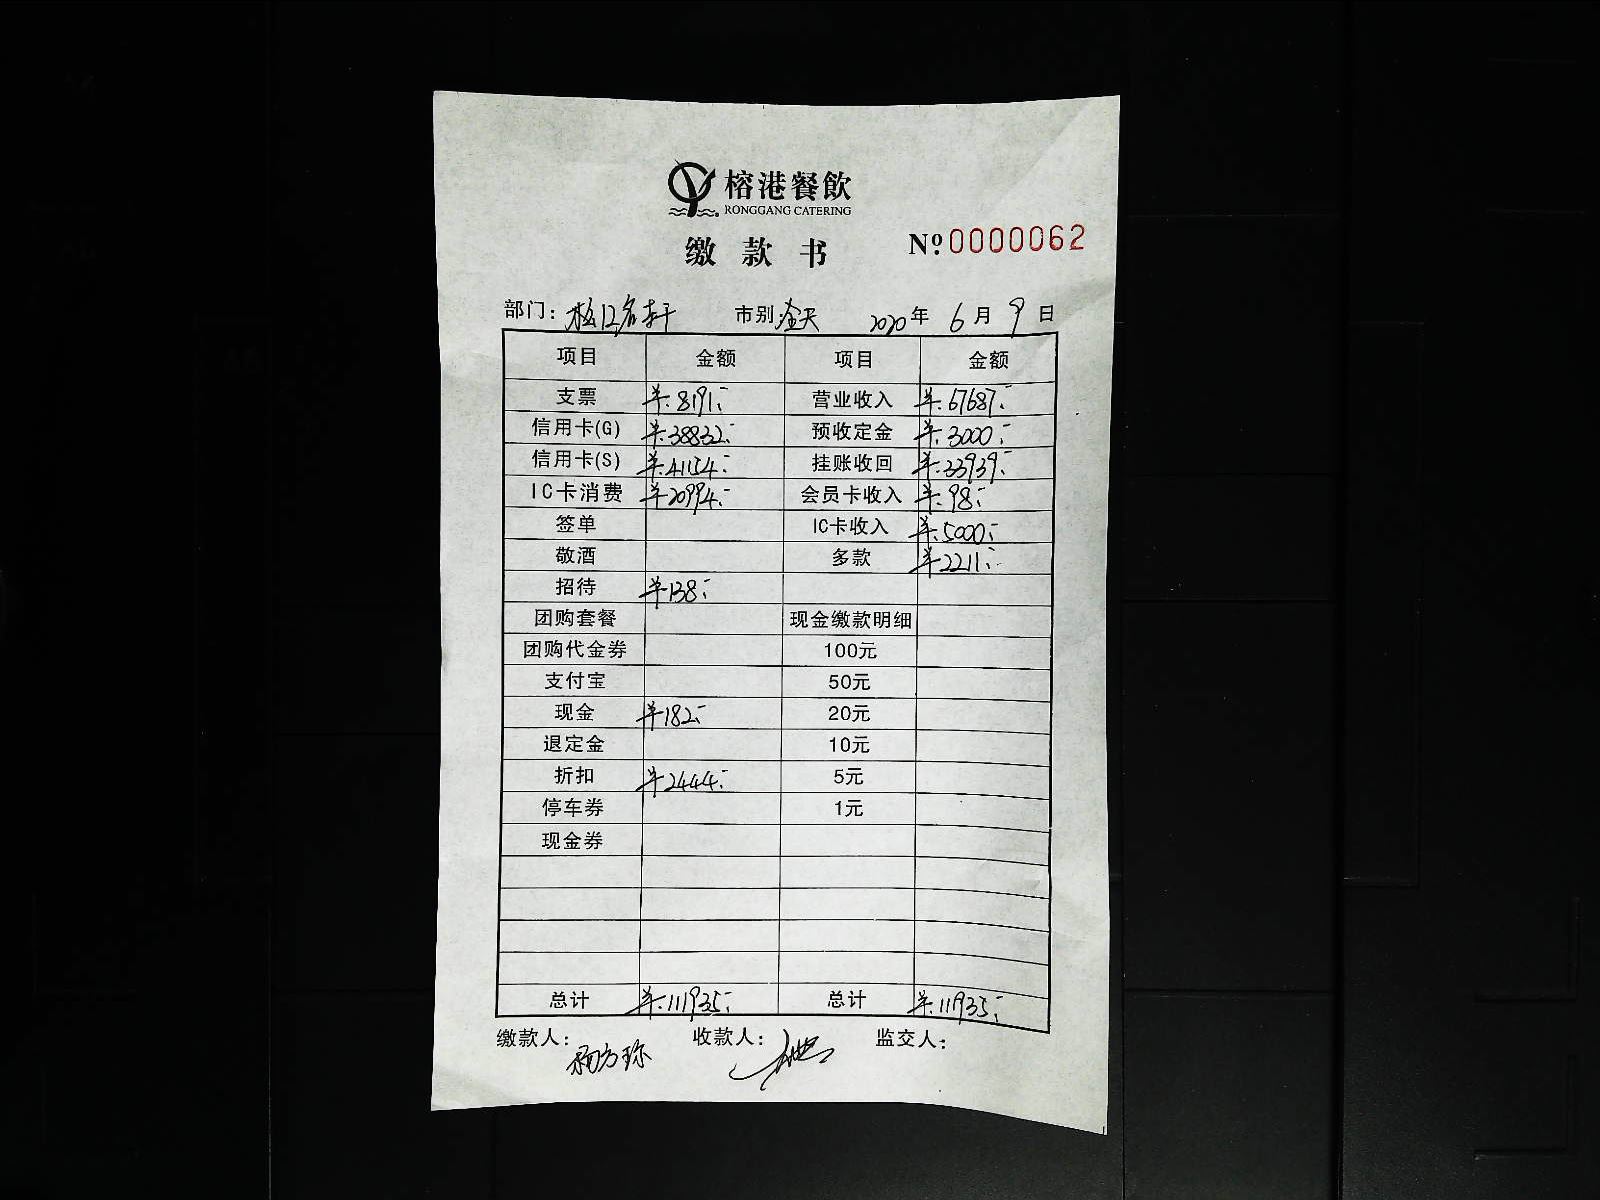 榕港餐飲
RONGGANG CATERING
缴款书
Nº 0000062
部门: 名轩 市别:全天 2020年6月9日
项目 金额 项目 金额
支票 ¥:8191:- 营业收入 ¥:67687:-
信用卡(G) ¥:38832:- 预收定金 ¥:3000:-
信用卡(S) ¥:41154:- 挂账收回 ¥:33939:-
IC卡消费 ¥20994:- 会员卡收入 ¥:98:-
签单 IC卡收入 ¥:5000:-
敬酒 多款 ¥2211:-
招待 ¥138:-
团购套餐 现金缴款明细
团购代金券 100元
支付宝 50元
现金 ¥182:- 20元
退定金 10元
折扣 ¥2444:- 5元
停车券 1元
现金券
总计 ¥:111935:- 总计 ¥:111935:-
缴款人: 收款人: 监交人: